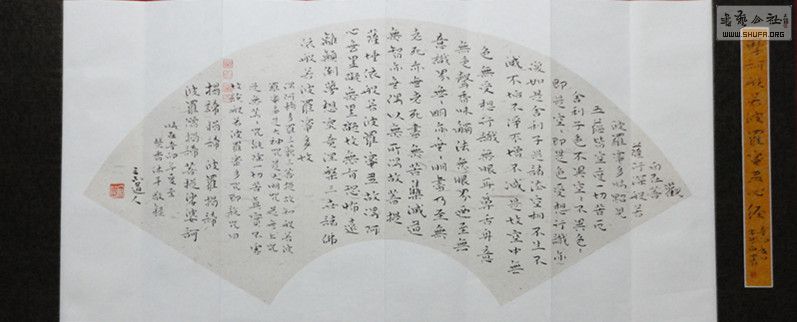 觀
自在菩
薩行深般若
波羅蜜多時照見
五蘊皆空度一切苦厄
舍利子色不異空空不異色
即是空空即是色受想行識亦
復如是舍利子是諸法空相不生不
滅不垢不淨不增不減是故空中無
色無受想行識無眼耳鼻舌身意
無色聲香味觸法無眼界乃至無
意識界無無明亦無無明盡乃至無
老死亦無老死盡無苦集滅道
無智亦無得以無所得故菩提
薩埵依般若波羅蜜多故
心無罣礙無罣礙故無有恐怖遠
離顛倒夢想究竟涅槃三世諸佛
依般若波羅蜜多故
得阿耨多羅三藐三菩提故知般若波
羅蜜多是大神咒是大明咒是無上咒
是無等等咒能除一切苦真實不虛
故說般若波羅蜜多咒即說咒曰
揭諦揭諦波羅揭諦
波羅僧揭諦菩提薩婆訶
歲在
焚香沐手敬錄
道人
摩訶般若波羅蜜多心經
WWW.SHUFA.ORG